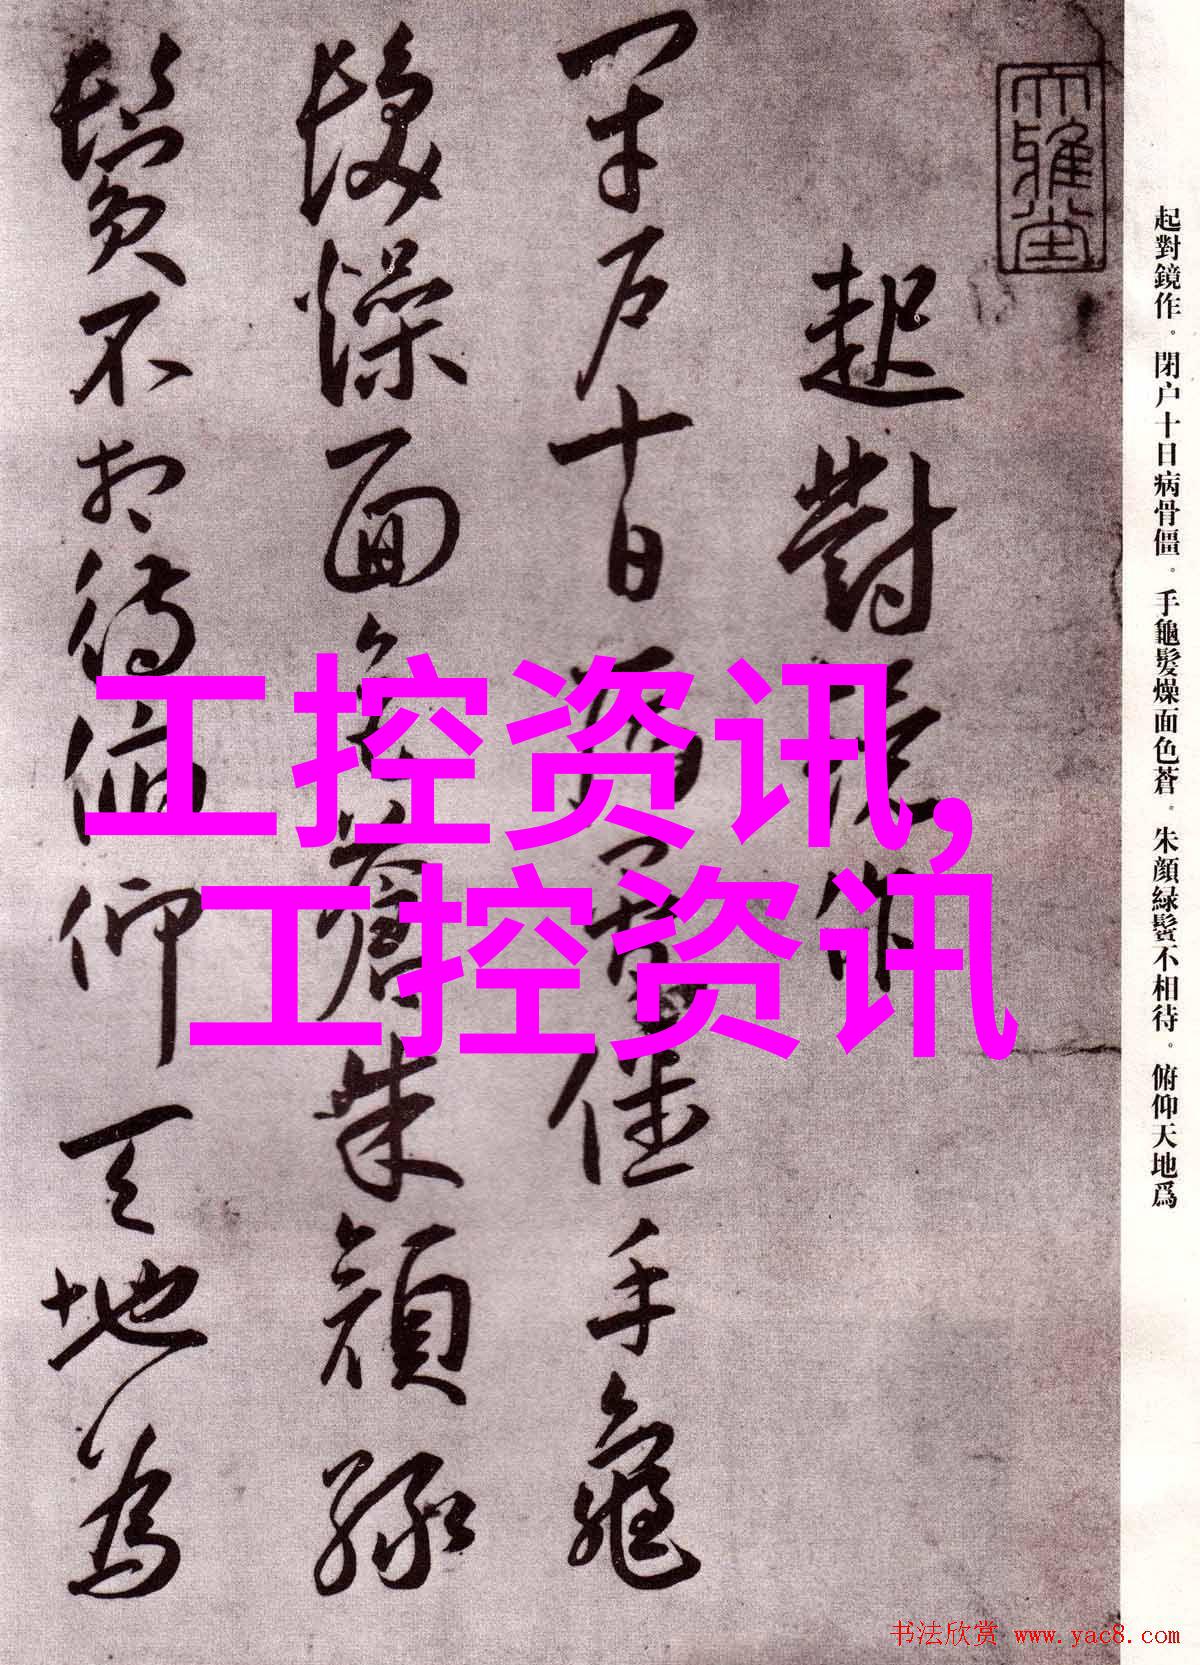 大雅堂
起對鏡作
閉户十日病骨僵手龜
髮燥面色蒼朱顔緑
鬓不相待俯仰天地爲
起對鏡作。閉户十日病骨僵。手龜髮燥面色蒼。朱顔緑鬓不相待。俯仰天地爲
工控资讯,
工控资讯
书法欣赏 www.yac8.com